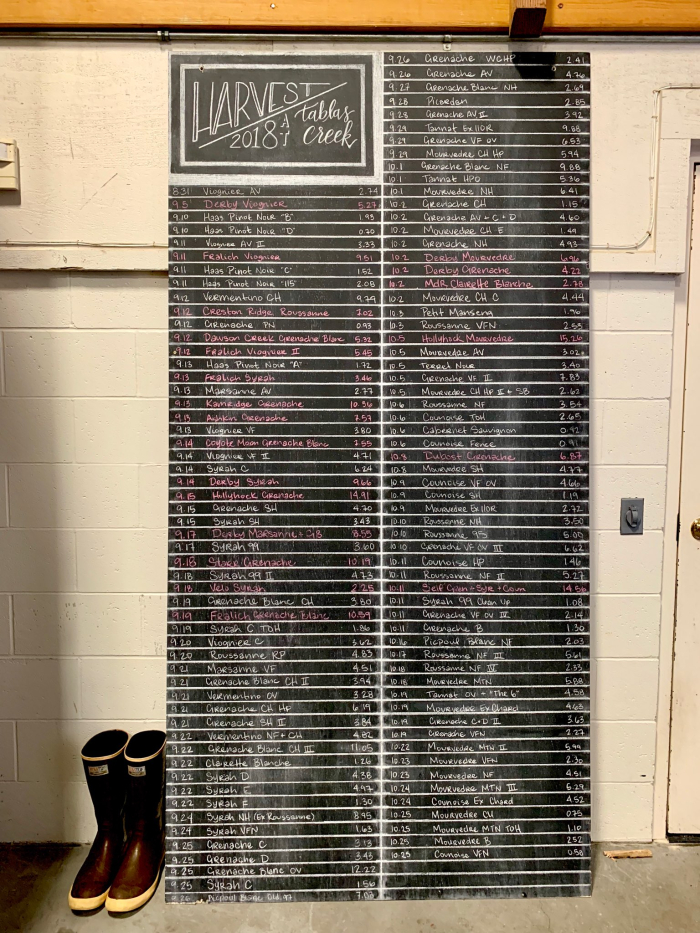 HARVEST
2018 AT
tablas
creek
8.31 Viognier AV 2.74
9.5 Derby Viognier 5.27
9.10 Haas Pinot Noir "B" 1.93
9.10 Haas Pinot Noir "D" 0.70
9.11 Viognier AV II 3.33
9.11 Fralich Viognier 9.51
9.11 Haas Pinot Noir "C" 1.52
9.11 Haas Pinot Noir "115" 2.08
9.12 Vermentino CH 9.79
9.12 Creston Ridge Roussanne 7.02
9.12 Grenache PN 0.93
9.12 Dawson Creek Grenache Blanc 5.32
9.12 Fralich Viognier II 5.45
9.13 Haas Pinot Noir "A" 1.72
9.13 Fralich Syrah 3.46
9.13 Marsanne AV 2.77
9.13 Kamridge Grenache 10.36
9.13 Grenache 7.57
9.13 Viognier VF 3.80
9.14 Coyote Moon Grenache Blanc 7.55
9.14 Viognier VF II 4.71
9.14 Syrah C 6.24
9.14 Derby Syrah 9.66
9.15 Hollyhock Grenache 14.91
9.15 Grenache SH 4.70
9.15 Syrah SH 3.43
9.17 Derby Marsanne + GB 8.55
9.17 Syrah 99 3.60
9.18 Starr Grenache 10.19
9.18 Syrah 99 II 4.73
9.18 Velo Syrah 2.25
9.19 Grenache Blanc CH 3.80
9.19 Fralich Grenache Blanc 10.59
9.19 Syrah C TOH 1.86
9.20 Viognier C 3.62
9.20 Roussanne RP 4.83
9.21 Marsanne VF 4.51
9.21 Grenache Blanc CH II 3.94
9.21 Vermentino OV 3.28
9.21 Grenache CH HP 6.19
9.21 Grenache SH II 3.84
9.22 Vermentino NF + CH 4.82
9.22 Grenache Blanc CH III 11.05
9.22 Clairette Blanche 1.26
9.22 Syrah D 4.38
9.22 Syrah E 4.97
9.22 Syrah F 1.30
9.24 Syrah NH (Ex Roussanne) 8.95
9.24 Syrah VFN 1.63
9.25 Grenache C 3.13
9.25 Grenache D 3.43
9.25 Grenache Blanc OV 12.22
9.25 Syrah C 1.56
9.26 Picpoul Blanc
9.26 Grenache WCHP 2.41
9.26 Grenache AV 4.76
9.27 Grenache Blanc NH 2.69
9.28 Picardan 2.85
9.28 Grenache AV II 3.92
9.29 Tannat Ex 110R 9.88
9.29 Grenache VF OV 6.53
9.29 Mourvedre CH HP 5.94
10.1 Grenache Blanc NF 9.88
10.1 Tannat HPO 5.36
10.1 Mourvedre NH 6.41
10.2 Grenache CH 1.15
10.2 Grenache AV + C + D 4.60
10.2 Mourvedre CH E 1.49
10.2 Grenache NH 4.93
10.2 Derby Mourvedre 6.96
10.2 Derby Grenache 4.22
10.2 MdR Clairette Blanche 2.78
10.2 Mourvedre CH C 4.44
10.3 Petit Manseng 1.96
10.3 Roussanne VFN 2.55
10.5 Hollyhock Mourvedre 15.26
10.5 Mourvedre AV 3.02
10.5 Terret Noir 3.40
10.5 Grenache VF II 7.83
10.5 Mourvedre CH HP II + SB 2.62
10.6 Roussanne NF 3.54
10.6 Counoise TOH 2.65
10.6 Cabernet Sauvignon 0.92
10.6 Counoise Fence 0.91
10.8 Dubost Grenache 6.87
10.8 Mourvedre SH 4.77
10.9 Counoise VF OV 4.66
10.9 Counoise SH 1.19
10.9 Mourvedre Ex 110R 2.72
10.10 Roussanne NH 3.50
10.10 Roussanne 95 5.00
10.10 Grenache VF OV III 6.62
10.11 Counoise HP 1.46
10.11 Roussanne NF II 5.27
10.11 Gren + Syr + Coun 14.56
10.11 Syrah 99 Clean Up 1.08
10.11 Grenache VF OV III 2.14
10.11 Grenache B 1.30
10.16 Picpoul Blanc NF 2.03
10.17 Roussanne NF III 5.61
10.18 Roussanne NF IV 2.33
10.18 Mourvedre MTN 5.88
10.19 Tannat OV + "The 6" 4.58
10.19 Mourvedre Ex Chard 4.63
10.19 Grenache C+D II 3.63
10.19 Grenache VFN 2.27
10.22 Mourvedre MTN II 5.99
10.23 Mourvedre VFN 2.30
10.23 Mourvedre NF 4.51
10.24 Mourvedre MTN III 6.29
10.24 Counoise Ex Chard 4.52
10.25 Mourvedre CH 0.75
10.25 Mourvedre MTN TOH 1.10
10.25 Mourvedre B 2.52
10.25 Counoise VFN 0.58